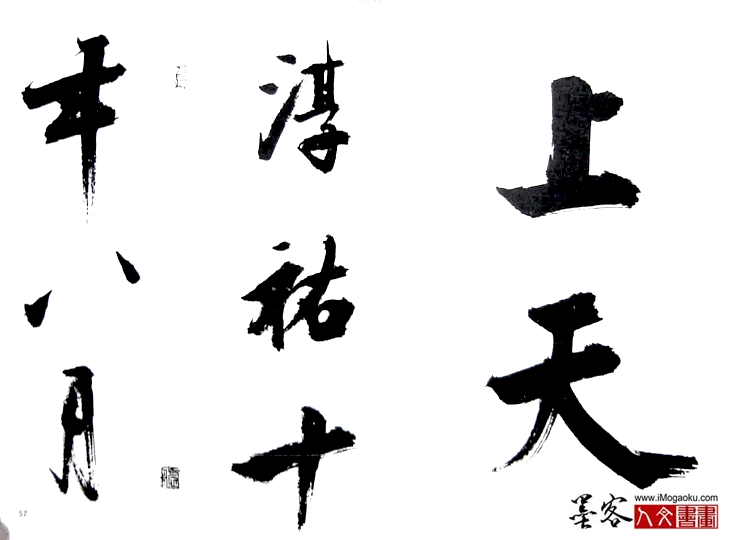 上天
淳祐十
年八月
57
墨客
www.iMogaoku.com
人文書畫